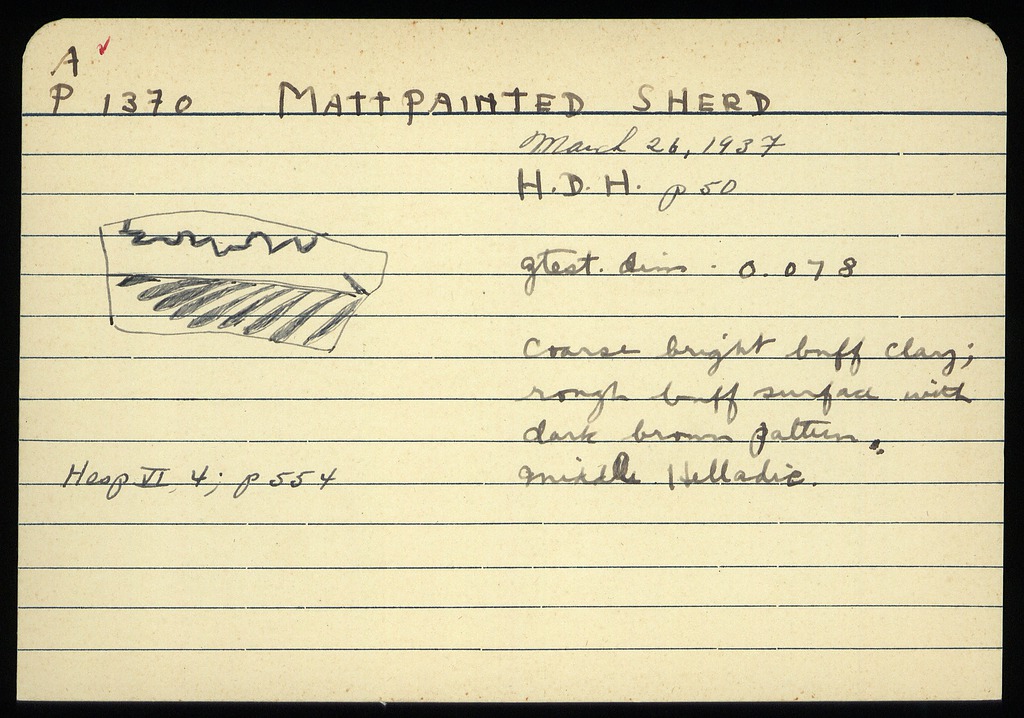 A
P 1370 MATTPAINTED SHERD
March 26, 1937
H.D.H. p 50
gtest. dim. 0.078
Coarse bright buff clay;
rough buff surface with
dark brown pattern.
Middle Helladic.
Hesp VI, 4; p 554